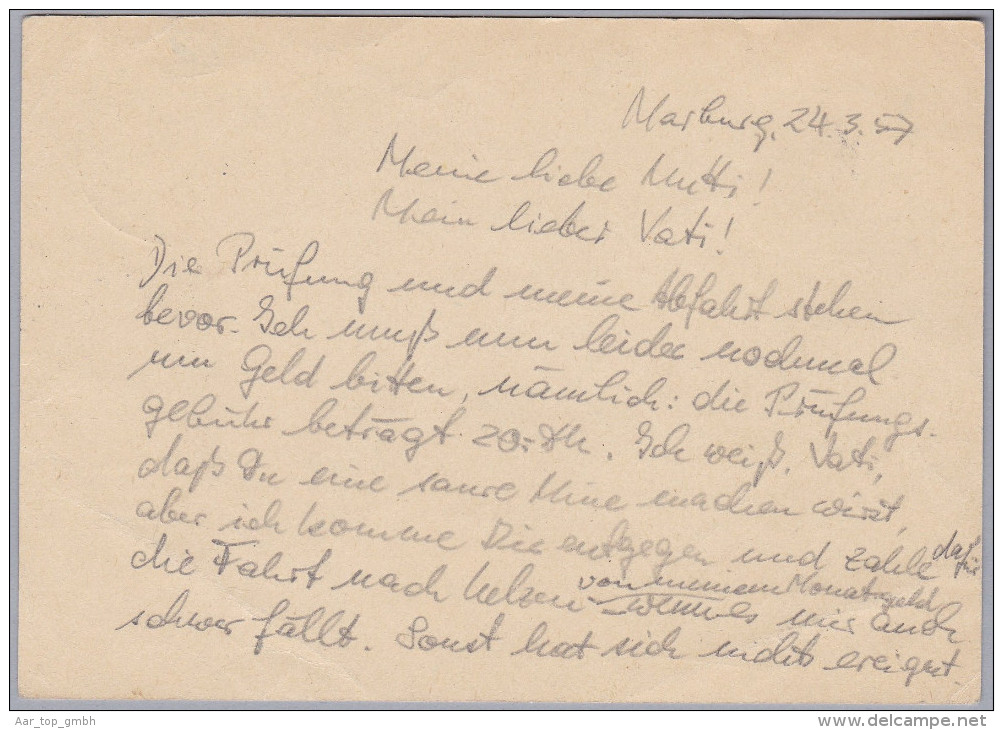 Marburg, 24.3.57
Meine liebe Mutti!
Mein lieber Vati!
Die Prüfung und meine Abfahrt stehen
bevor. Ich muß nun leider nochmal
um Geld bitten, nämlich: die Prüfungs-
gebühr beträgt 20.- DM. Ich weiß, Vati,
daß Du eine saure Miene machen wirst,
aber ich komme Dir entgegen und zahle dafür
die Fahrt nach Uelzen von meinem Monatsgeld
wenn es mir auch
schwer fällt. Sonst hat sich nichts ereignet.
Aar_top_gmbh
www.delcampe.net